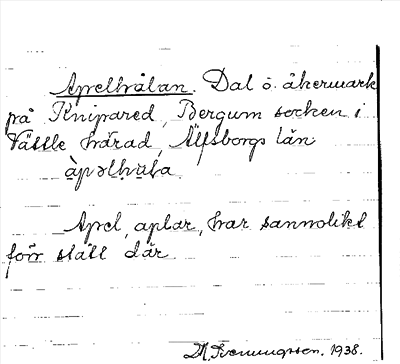 Apelhålan. Dal o. åkermark
på Knipared, Bergum socken i
Vättle härad, Älfsborgs län.
àpəlhɷ̀la.
Apel, aplar, har sannolikt
förr stått där
1938.